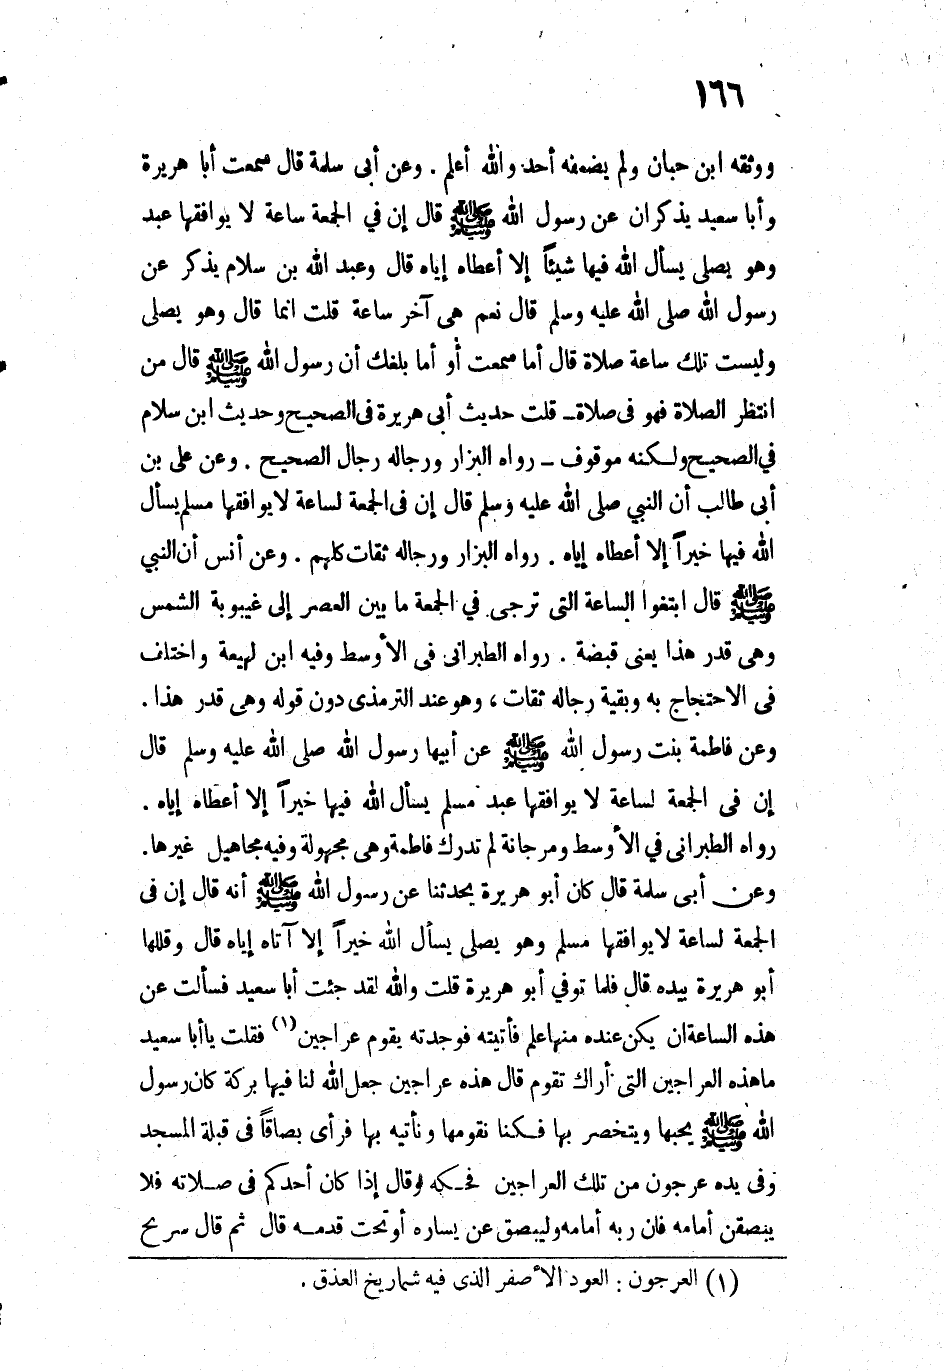 ١٦٦
ووثقه ابن حبان ولم يضعفه أحد والله أعلم . وعن أبى سلمة قال سمعت أبا هريرة
وأبا سعيد يذكران عن رسول الله ﷺ قال إن في الجمعة ساعة لا يوافقها عبد
وهو يصلى يسأل الله فيها شيئاً إلا أعطاه إياه قال وعبد الله بن سلام يذكر عن
رسول الله صلى الله عليه وسلم قال نعم هى آخر ساعة قلت انما قال وهو يصلى
وليست تلك ساعة صلاة قال أما سمعت أو أما بلغك أن رسول الله ﷺ قال من
انتظر الصلاة فهو فى صلاة ـ قلت حديث أبى هريرة فى الصحيح وحديث ابن سلام
في الصحيح ولكنه موقوف ـ رواه البزار ورجاله رجال الصحيح . وعن على بن
أبى طالب أن النبي صلى الله عليه وسلم قال إن فى الجمعة لساعة لا يوافقها مسلم يسأل
الله فيها خيراً إلا أعطاه إياه . رواه البزار ورجاله ثقات كلهم . وعن أنس أن النبي
ﷺ قال ابتغوا الساعة التى ترجى في الجمعة ما بين العصر إلى غيبوبة الشمس
وهى قدر هذا يعنى قبضة . رواه الطبرانى فى الأوسط وفيه ابن لهيعة واختلف
فى الاحتجاج به وبقية رجاله ثقات ، وهو عند الترمذى دون قوله وهى قدر هذا .
وعن فاطمة بنت رسول الله ﷺ عن أبيها رسول الله صلى الله عليه وسلم قال
إن فى الجمعة لساعة لا يوافقها عبد مسلم يسأل الله فيها خيراً إلا أعطاه إياه .
رواه الطبرانى في الأوسط ومرجانة لم تدرك فاطمة وهى مجهولة وفيه مجاهيل غيرها.
وعن أبى سلمة قال كان أبو هريرة يحدثنا عن رسول الله ﷺ أنه قال إن فى
الجمعة لساعة لا يوافقها مسلم وهو يصلى يسأل الله خيراً إلا آتاه إياه قال وقللها
أبو هريرة بيده قال فلما توفي أبو هريرة قلت والله لقد جئت أبا سعيد فسألت عن
هذه الساعة ان يكن عنده منها علم فأتيته فوجدته يقوم عراجين (١) فقلت يا أبا سعيد
ما هذه العراجين التى أراك تقوم قال هذه عراجين جعل الله لنا فيها بركة كان رسول
الله ﷺ يحبها ويتخصر بها فكنا نقومها ونأتيه بها فرأى بصاقاً فى قبلة المسجد
وفى يده عرجون من تلك العراجين فحكه وقال إذا كان أحدكم فى صلاته فلا
يبصقن أمامه فان ربه أمامه وليبصق عن يساره أو تحت قدمه قال ثم قال سريج
(١) العرجون : العود الأصفر الذى فيه شماريخ العذق .